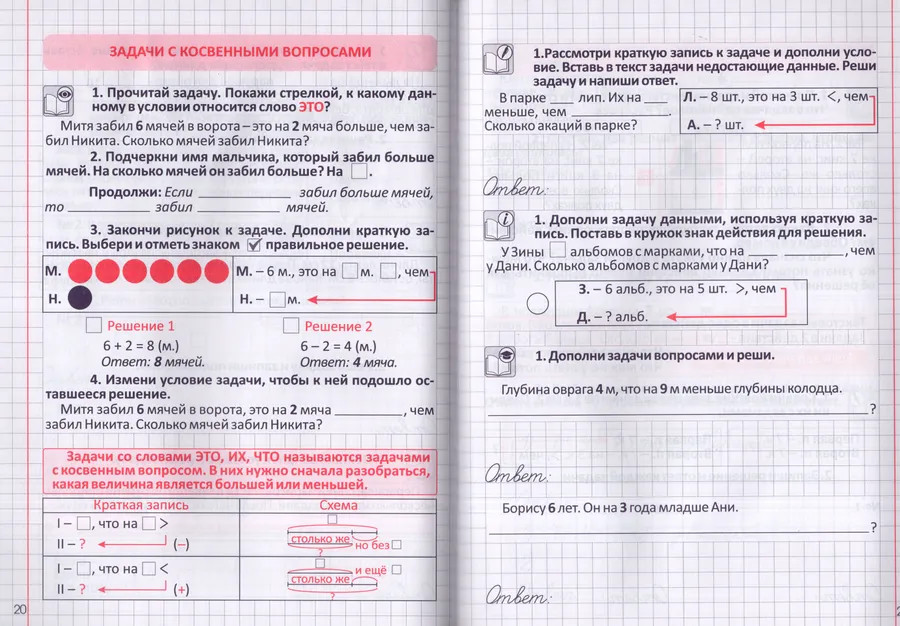 ЗАДАЧИ С КОСВЕННЫМИ ВОПРОСАМИ
1. Прочитай задачу. Покажи стрелкой, к какому дан-
ному в условии относится слово ЭТО?
Митя забил 6 мячей в ворота – это на 2 мяча больше, чем за-
бил Никита. Сколько мячей забил Никита?
2. Подчеркни имя мальчика, который забил больше
мячей. На сколько мячей он забил больше? На □.
Продолжи: Если ____ забил больше мячей,
то ____ забил ____ мячей.
3. Закончи рисунок к задаче. Дополни краткую за-
пись. Выбери и отметь знаком ☑ правильное решение.
М.
Н.
М. – 6 м., это на □ м. □, чем
Н. – □ м.
□ Решение 1
6 + 2 = 8 (м.)
Ответ: 8 мячей.
□ Решение 2
6 – 2 = 4 (м.)
Ответ: 4 мяча.
4. Измени условие задачи, чтобы к ней подошло ос-
тавшееся решение.
Митя забил 6 мячей в ворота, это на 2 мяча ____, чем
забил Никита. Сколько мячей забил Никита?
Задачи со словами ЭТО, ИХ, ЧТО называются задачами
с косвенным вопросом. В них нужно сначала разобраться,
какая величина является большей или меньшей.
Краткая запись
Схема
I – □, что на □ >
II – ? (–)
столько же но без □
?
I – □, что на □ <
II – ? (+)
и ещё □
столько же
?
20
1.Рассмотри краткую запись к задаче и дополни усло-
вие. Вставь в текст задачи недостающие данные. Реши
задачу и напиши ответ.
В парке ___ лип. Их на ___
меньше, чем ____.
Сколько акаций в парке?
Л. – 8 шт., это на 3 шт. <, чем
А. – ? шт.
Ответ:
1. Дополни задачу данными, используя краткую за-
пись. Поставь в кружок знак действия для решения.
У Зины □ альбомов с марками, что на ____, чем
у Дани. Сколько альбомов с марками у Дани?
З. – 6 альб., это на 5 шт. >, чем
Д. – ? альб.
1. Дополни задачи вопросами и реши.
Глубина оврага 4 м, что на 9 м меньше глубины колодца.
____?
Ответ:
Борису 6 лет. Он на 3 года младше Ани.
____?
Ответ: